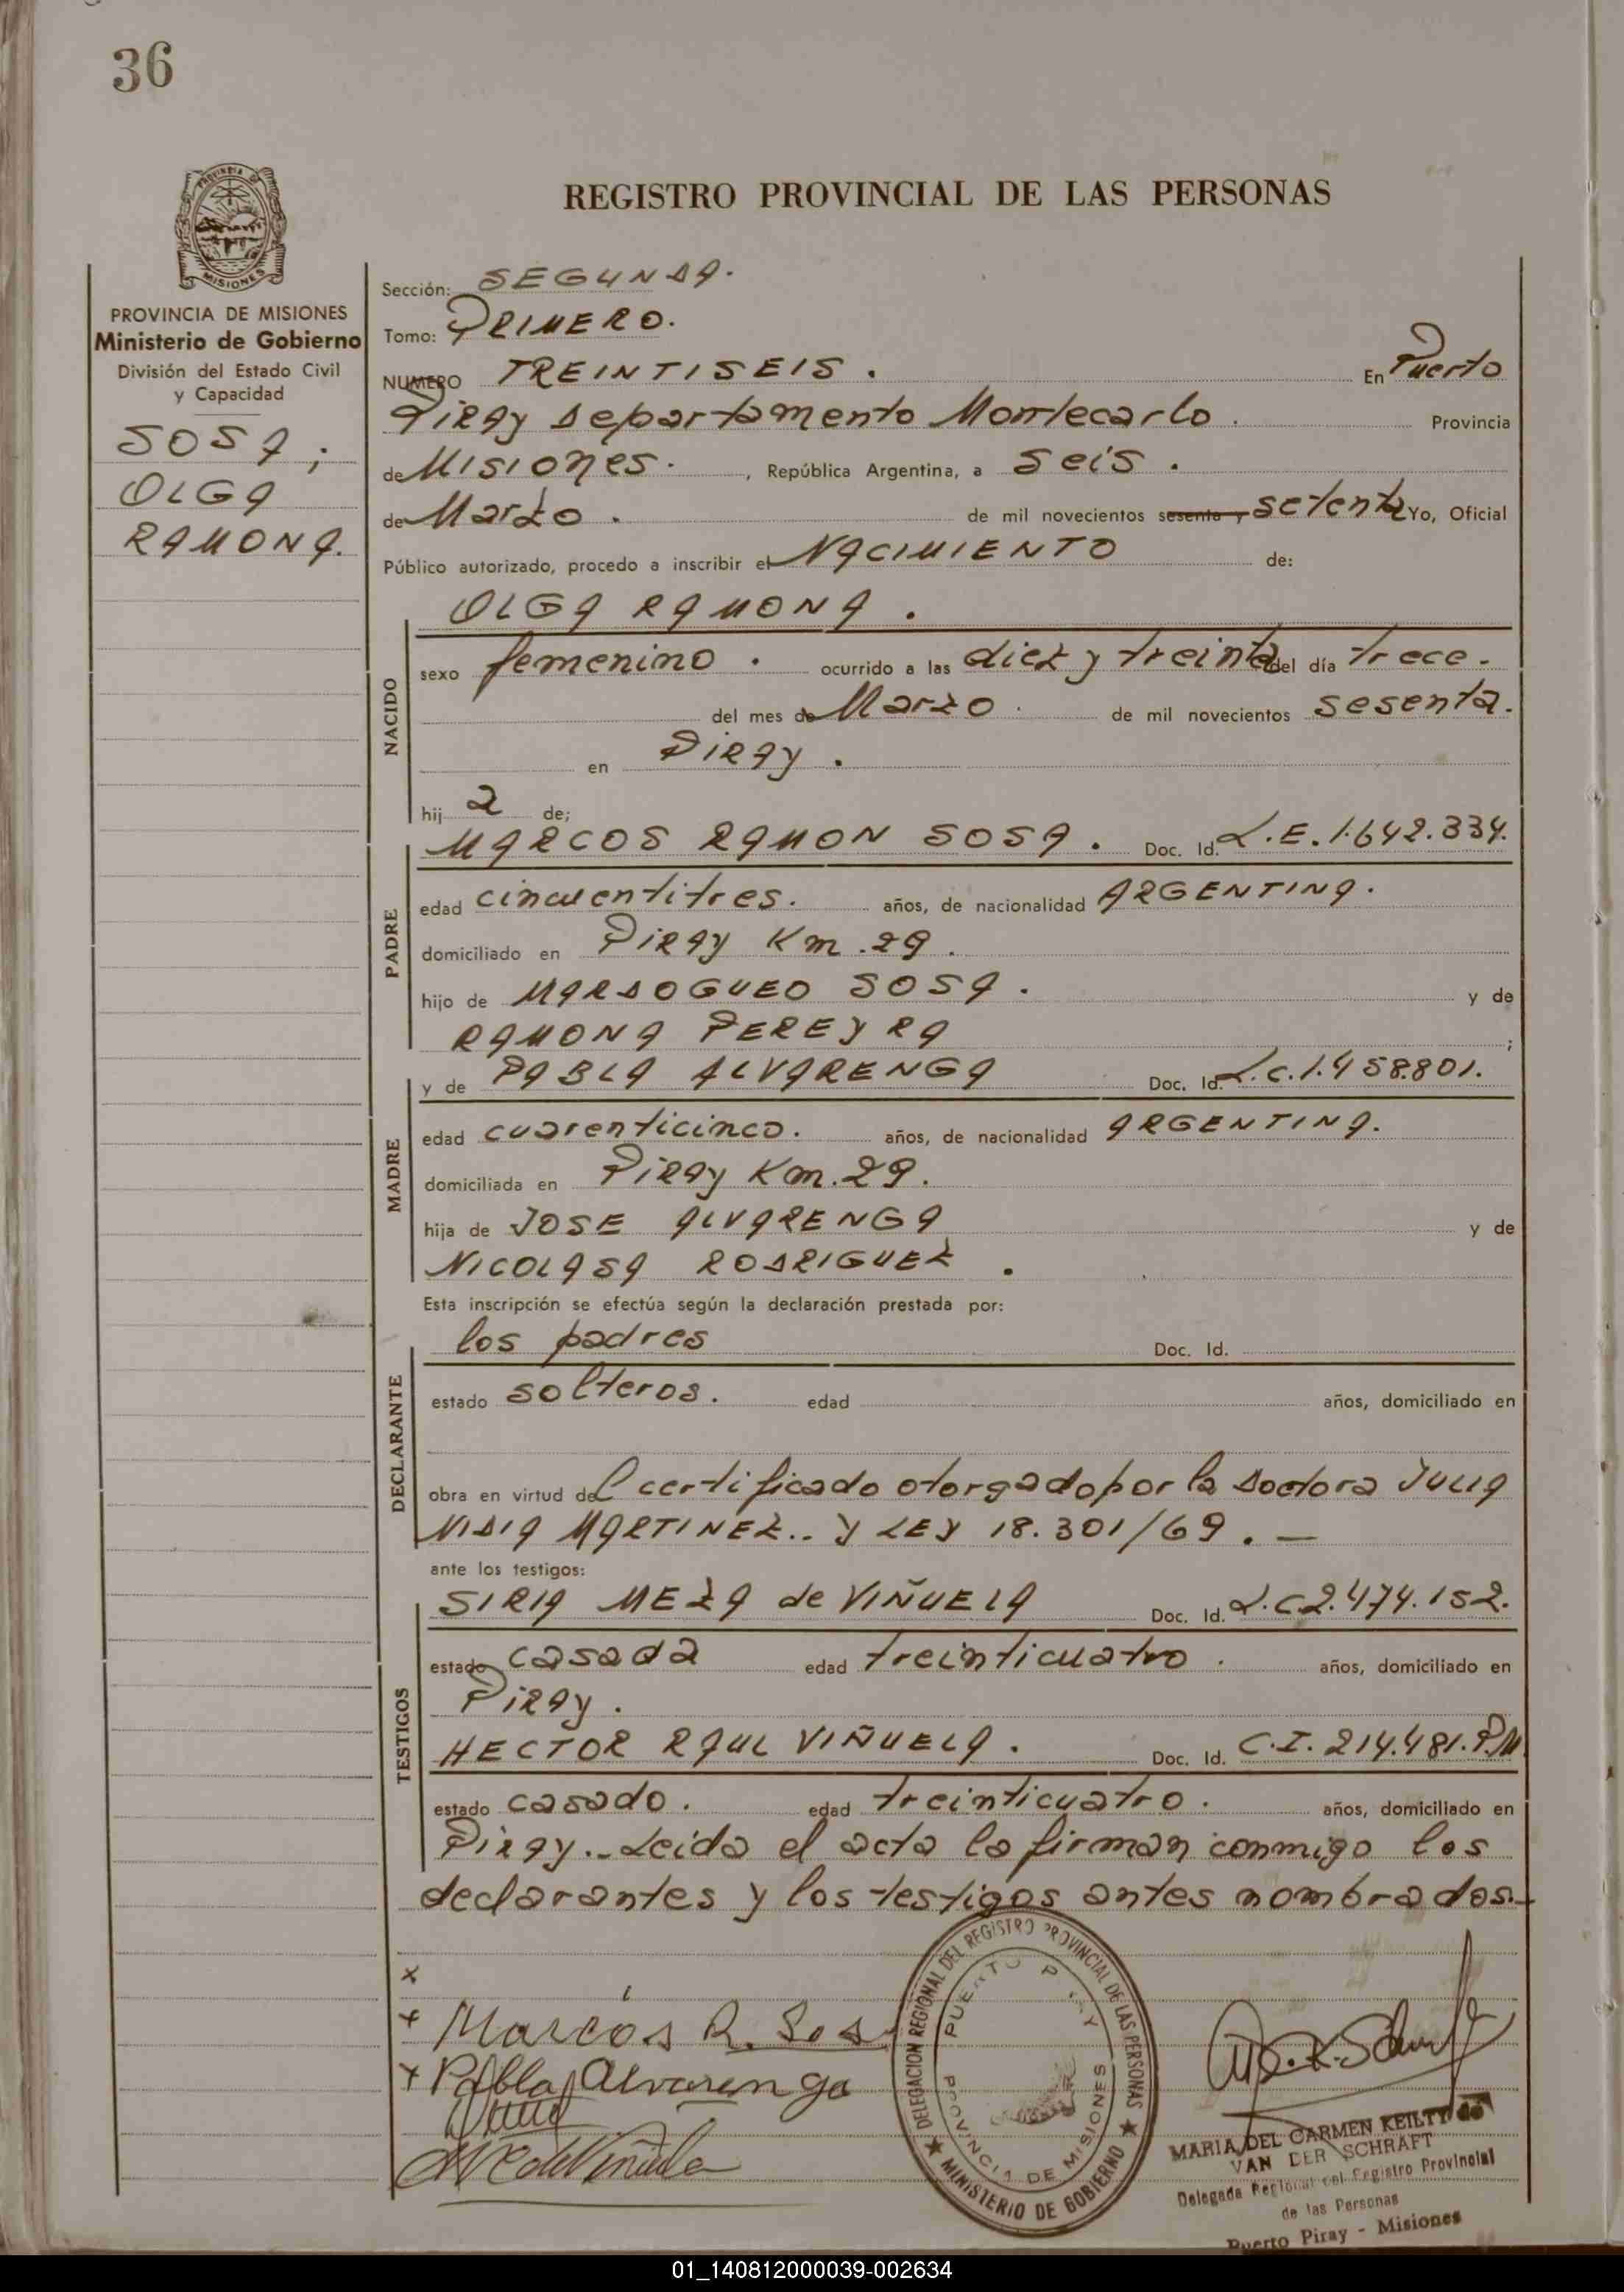 36
PROVINCIA DE
MISIONES
REGISTRO PROVINCIAL DE LAS PERSONAS
PROVINCIA DE MISIONES
Ministerio de Gobierno
División del Estado Civil
y Capacidad
SOSA;
OLGA
RAMONA.
Sección: SEGUNDA.
Tomo: PRIMERO.
NUMERO TREINTISEIS. En Puerto
Piray Departamento Montecarlo. Provincia
de Misiones. , República Argentina, a seis.
de Marzo. de mil novecientos sesenta y setenta Yo, Oficial
Público autorizado, procedo a inscribir el NACIMIENTO de:
OLGA RAMONA.
NACIDO
sexo femenino. ocurrido a las diez y treinta del día trece.
del mes de Marzo. de mil novecientos sesenta.
en Piray.
hij a de;
MARCOS RAMON SOSA. Doc. Id. L.E. 1.642.334.
PADRE
edad cincuentitres. años, de nacionalidad ARGENTINA.
domiciliado en Piray Km. 29.
hijo de MARDOQUEO SOSA. y de
RAMONA PEREYRA ;
y de PABLA ALVARENGA Doc. Id. L.C. 1.458.801.
MADRE
edad cuarenticinco. años, de nacionalidad ARGENTINA.
domiciliada en Piray Km. 29.
hija de JOSE ALVARENGA y de
NICOLASA RODRIGUEZ.
Esta inscripción se efectúa según la declaración prestada por:
los padres Doc. Id.
DECLARANTE
estado solteros. edad años, domiciliado en
obra en virtud del certificado otorgado por la Doctora JULIA
NIDIA MARTINEZ.. Y LEY 18.301/69. —
ante los testigos:
SIRIA MEZA de VIÑUELA Doc. Id. L.C 2.474.152.
TESTIGOS
estado casada edad treinticuatro. años, domiciliado en
Piray.
HECTOR RAUL VIÑUELA. Doc. Id. C.I. 214.481.P/M
estado casado. edad treinticuatro. años, domiciliado en
Piray.- Leida el acta la firman conmigo los
declarantes y los testigos antes nombrados.-
x
x Marcós R. Sosa
x Pabla Alvarenga
DELEGACION REGIONAL DEL REGISTRO PROVINCIAL DE LAS PERSONAS
★ MINISTERIO DE GOBIERNO ★
PROVINCIA DE MISIONES
MARIA DEL CARMEN KEILTY de
VAN DER SCHRAFT
Delegada Regional del Registro Provincial
de las Personas
Puerto Piray - Misiones
01_140812000039-002634